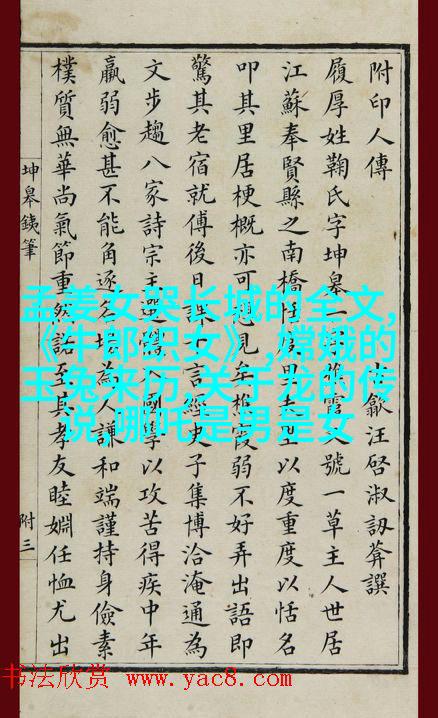 附印人傳
歙汪啓淑訒葊譔
履厚姓鞠氏字坤皋一號一草主人世居
江蘇奉賢縣之南橋里以度重度以恬名
叩其里居梗概亦可想見霞弱不好弄出語即
驚其老宿就傅後日課言經史子集博洽淹通為
文步趨八家詩宗主國學以攻苦得疾中年
羸弱愈甚不能角逐名場為人謙和端謹持身儉素
樸質無華尚氣節重然諾至其孝友睦婣任恤尤出
坤皋鐵筆
附三
孟姜女哭长城的全文,
《牛郎织女》,嫦娥的
玉兔来历,关于龙的传
说,哪吒是男是女
书法欣赏 www.yac8.com